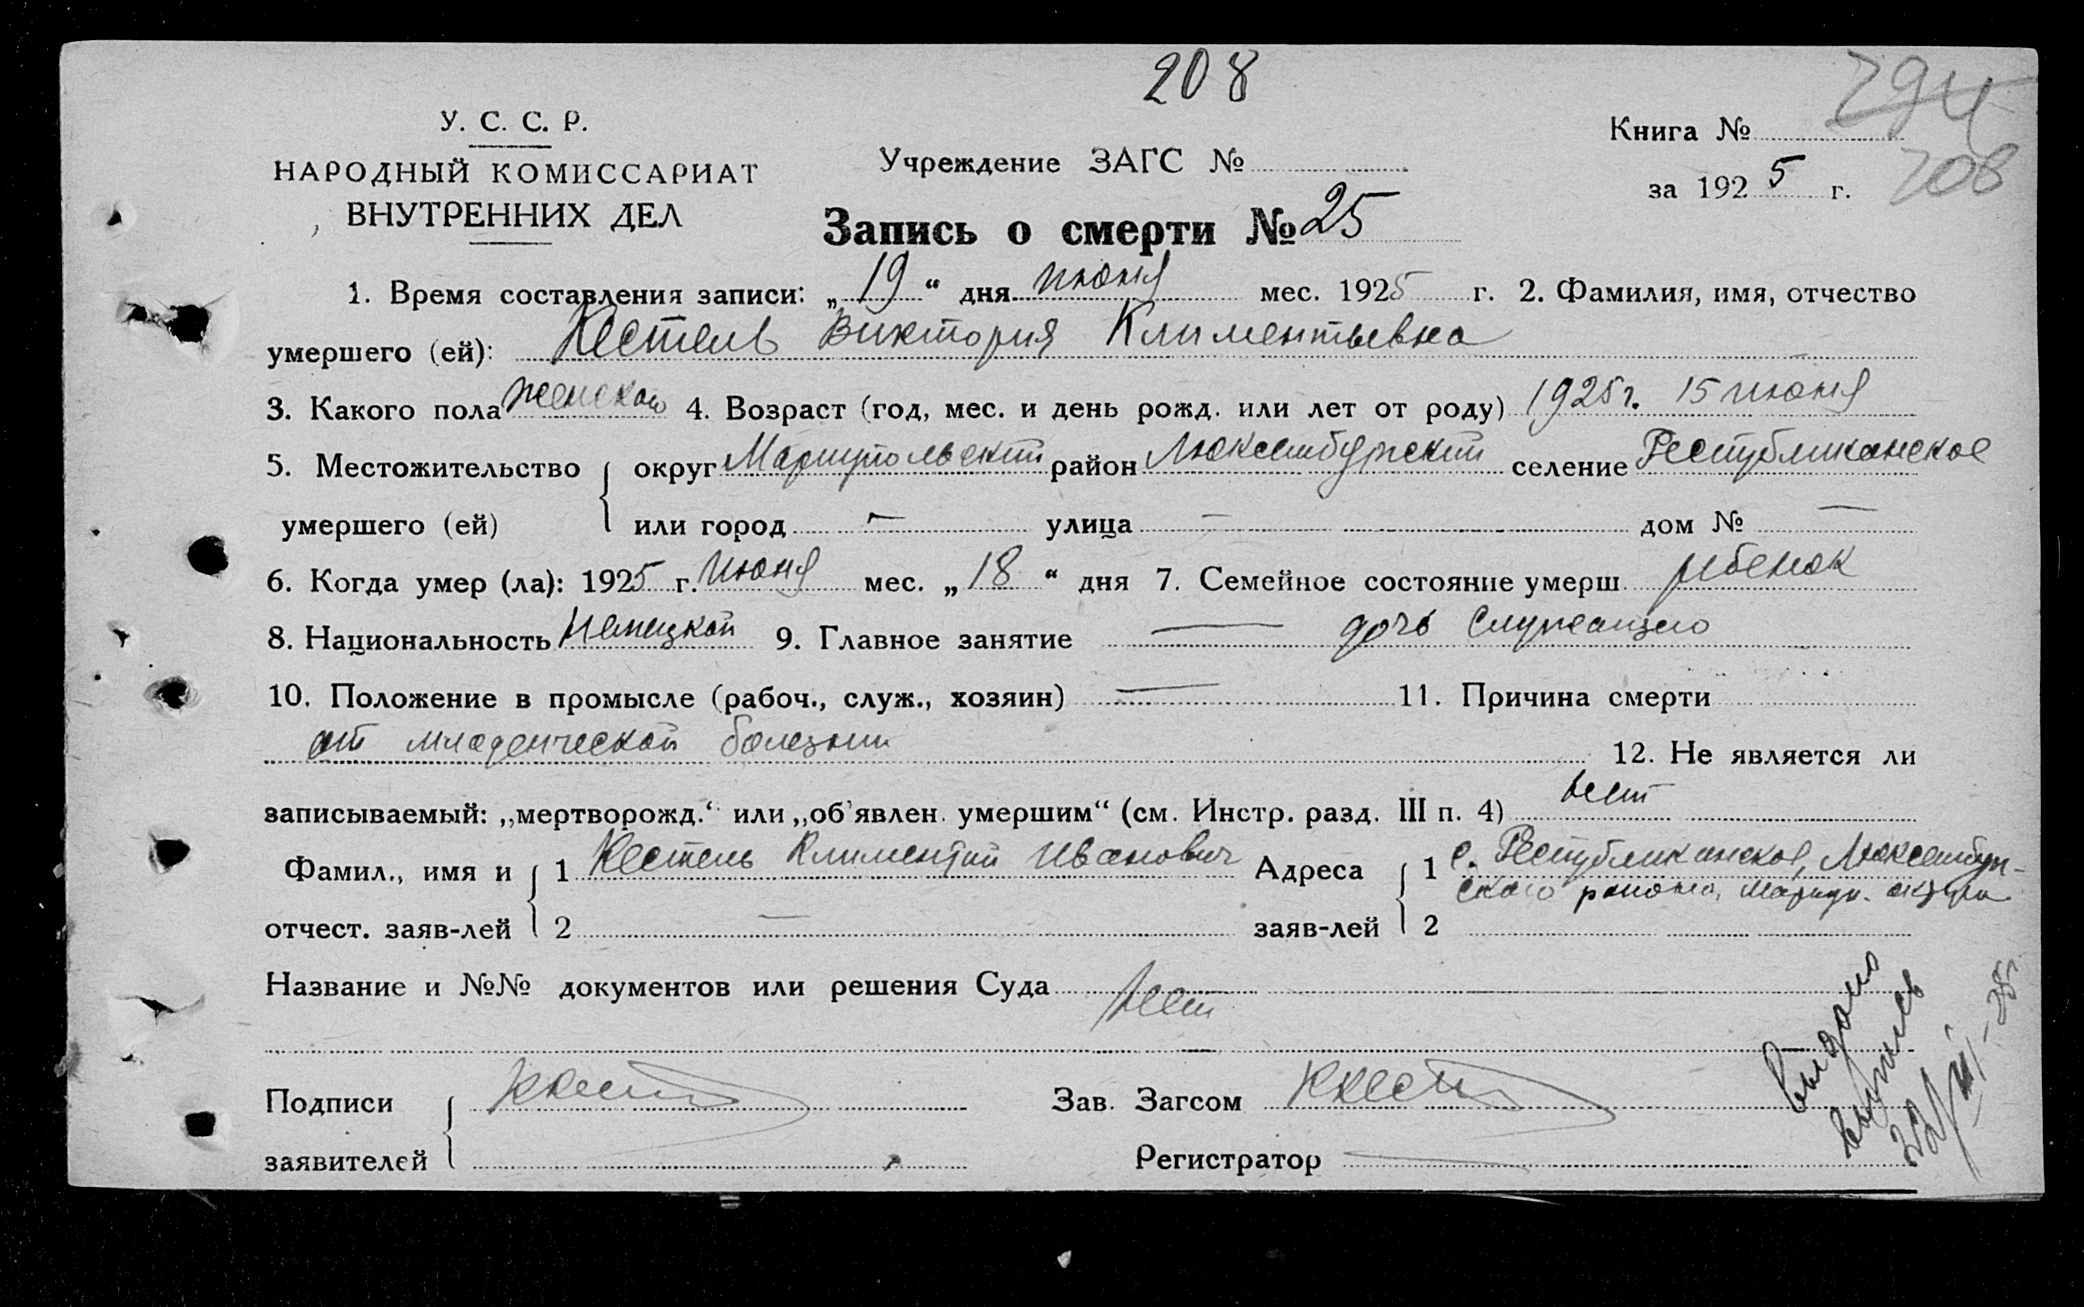 208
294
У. С. С. Р.
НАРОДНЫЙ КОМИССАРИАТ
ВНУТРЕННИХ ДЕЛ
Учреждение ЗАГС №
Книга №
за 1925 г.
208
Запись о смерти № 25
1. Время составления записи: „19“ дня июня мес. 1925 г. 2. Фамилия, имя, отчество
умершего (ей): Кестель Виктория Климентьевна
3. Какого пола женскою 4. Возраст (год, мес. и день рожд. или лет от роду) 1925 г. 15 июня
5. Местожительство округ Мариупольский район Люксембургский селение Республиканское
умершего (ей) или город — улица — дом № —
6. Когда умер (ла): 1925 г. июня мес. „18“ дня 7. Семейное состояние умерш. ребенок
8. Национальность немецкой 9. Главное занятие — дочь служащего
10. Положение в промысле (рабоч., служ., хозяин) — 11. Причина смерти
от младенческой болезни 12. Не является ли
записываемый: „мертворожд.“ или „об'явлен. умершим“ (см. Инстр. разд. III п. 4) нет
Фамил., имя и 1 Кестель Климентий Иванович Адреса 1 с. Республиканское, Люксембур-
ского района, Мариуп. округа
отчест. заяв-лей 2 — заяв-лей 2
Название и №№ документов или решения Суда нет
Подписи ККест Зав. Загсом ККест
заявителей Регистратор
Выдано
выпись